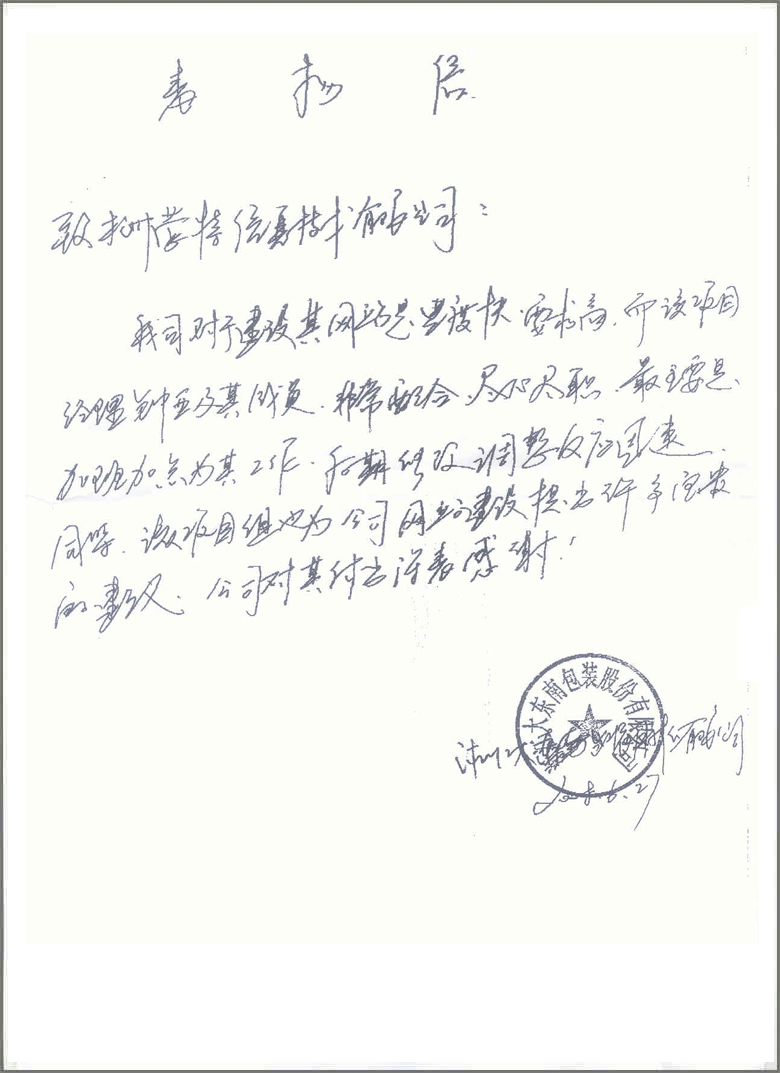 表扬信
致杭州蒙特信息技术有限公司：
我司对于建设其网站是进度快、要求高，而该项目
经理 及其成员，非常配合、尽心尽职，最主要是
加班加点为其工作，后期修改调整反应迅速，
同时，该项目组也为公司网站建设提出许多宝贵
的建议，公司对其付出深表感谢！
大东南包装股份有限公司
有限公司
6.27